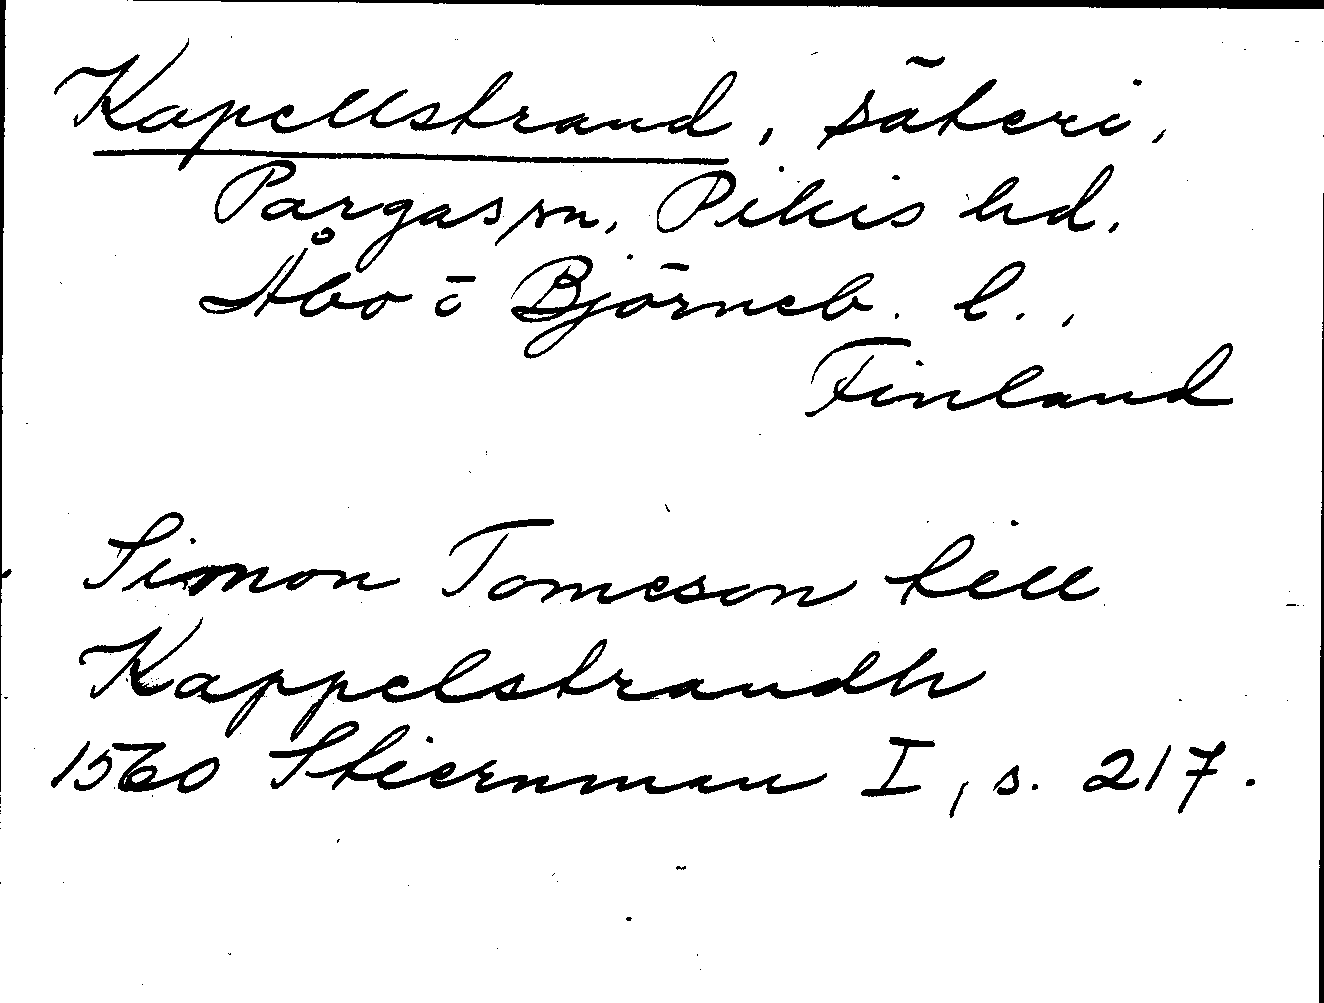 Kapellstrand, säteri,
Pargas sn, Pikis hd,
Åbo o Björneb. l.,
Finland
Simon Tomeson till
Kappelstrandh
1560 Stiernman I, s. 217.